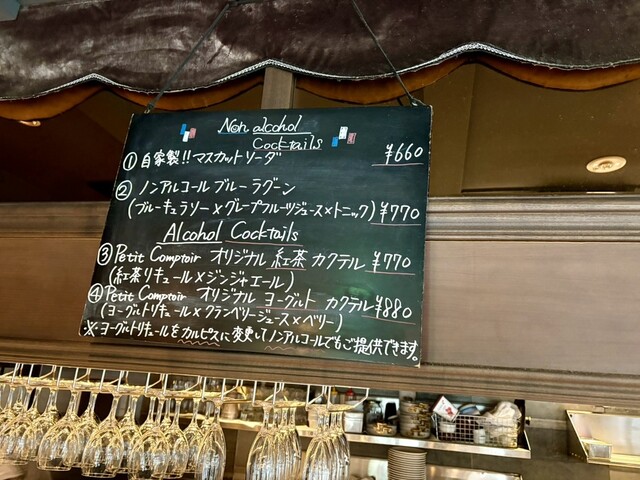 Non alcohol
Cocktails
① 自家製!! マスカットソーダ ¥660
② ノンアルコールブルーラグーン
(ブルーキュラソー×グレープフルーツジュース×トニック) ¥770
Alcohol Cocktails
③ Petit Comptoir オリジナル 紅茶 カクテル ¥770
(紅茶リキュール×ジンジャエール)
④ Petit Comptoir オリジナル ヨーグルト カクテル ¥880
(ヨーグルトリキュール×クランベリージュース×ベリー)
※ヨーグルトリキュールをカルピスに変更してノンアルコールでもご提供できます。